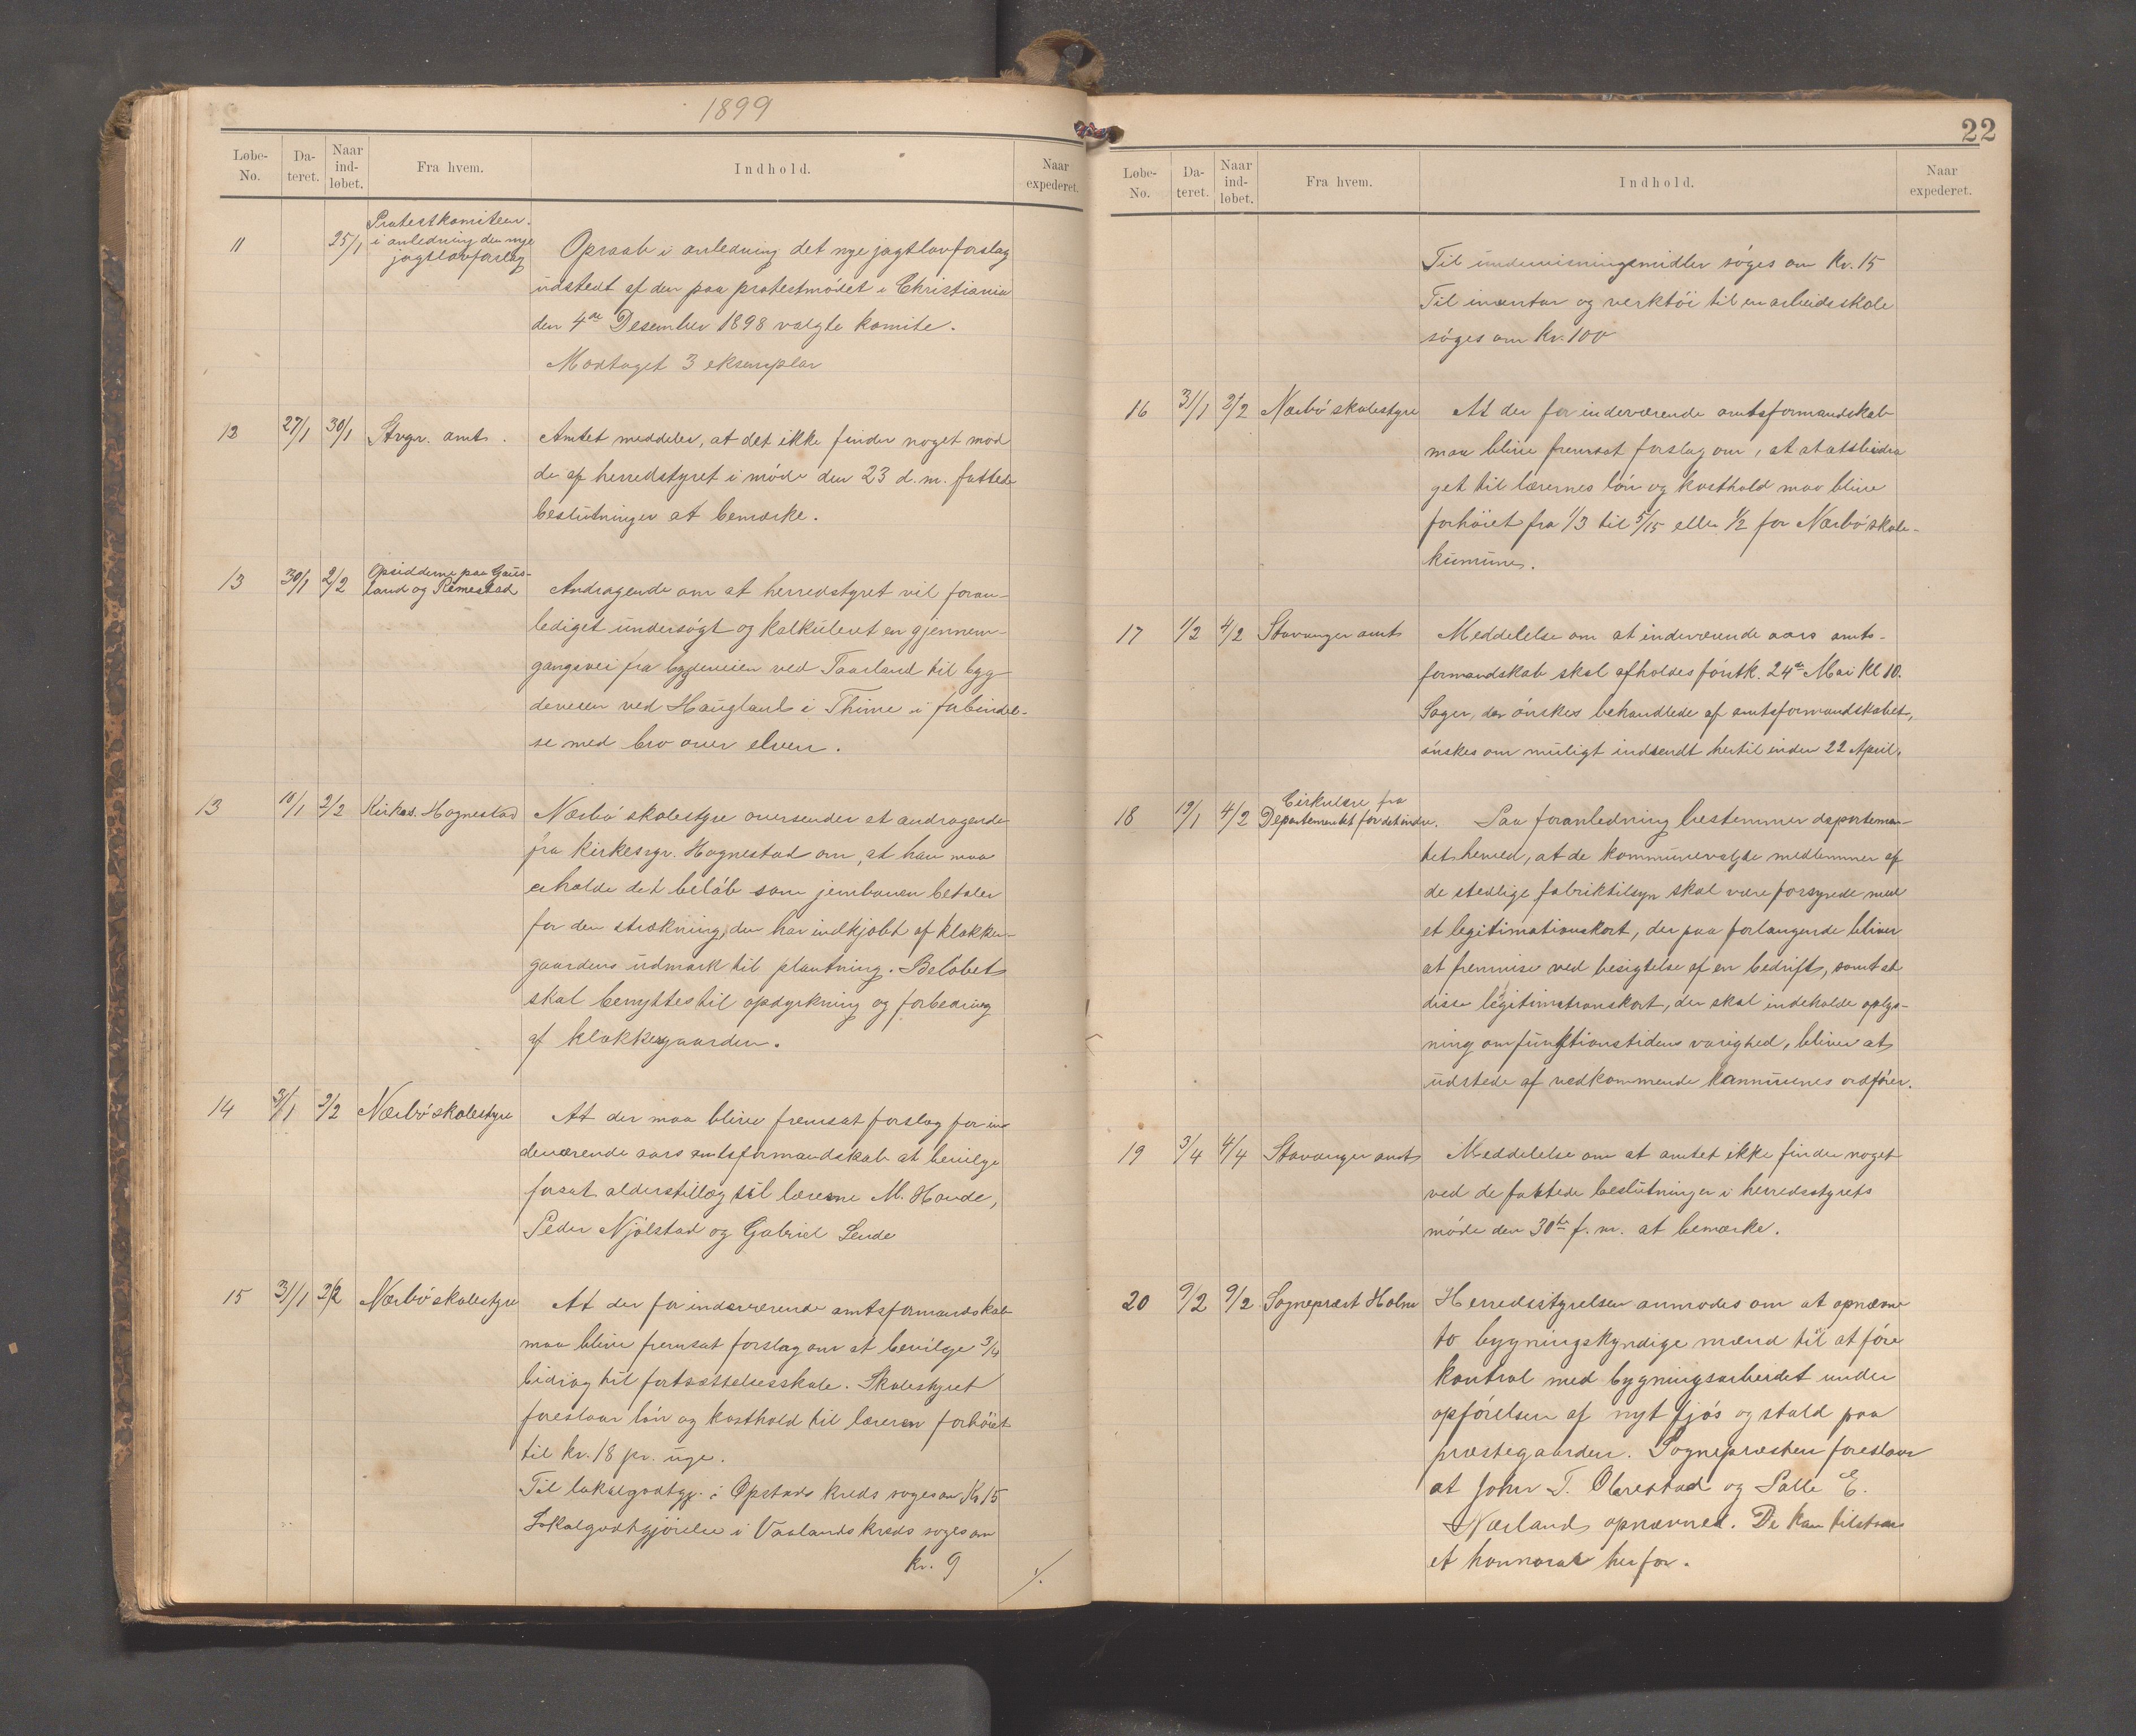 1899
Løbe-No. Dateret. Naar indløbet. Fra hvem. Indhold. Naar expederet.
11 25/1 Protestkomiteen i anledning den nye jagtlovforslag
Opraab i anledning det nye jagtlovforslag
udstedt af den paa protestmødet i Christiania
den 4de Desember 1898 valgte komite.
Modtaget 3 eksemplar
12 27/1 30/1 Stvgr. amt.
Amtet meddeler, at det ikke finder noget mod
de af herredstyret i møde den 23 d. m. fattede
beslutninger at bemærke.
13 30/1 2/2 Opsidderne paa Gausland og Rimestad
Andragende om at herredstyret vil foran-
lediget undersøgt og kalkuleret en gjennem-
gangsvei fra bygdeveien ved Taarland til byg-
deveien ved Haugland i Thime i forbindel-
se med bro over elven.
13 10/1 2/2 Kirkes. Hognestad
Nærbø skolestyre oversender et andragende
fra kirkesgr. Hognestad om, at han maa
erholde det beløb som jernbanen betaler
for den strækning, der har indkjøbt af klokker-
gaardens udmark til plantning. Beløbet
skal benyttes til opdyrkning og forbedring
af klokkergaarden.
14 31/1 2/2 Nærbø skolestyre
At der maa blive fremsat forslag for in-
deværende aars amtsformandskab at bevilge
forsat alderstillæg til lærerne M. Haude,
Peder Njølstad og Gabriel Lende
15 31/1 2/2 Nærbø skolestyre
At der for indeværende amtsformandskab
maa blive fremsat forslag om at bevilge 3/4
bidrag til fortsættelsesskole. Skolestyret
foreslaar løn og kosthold til læreren forhøiet
til kr. 18 pr. uge.
Til lokalgodtgj. i Opstad kreds søges om Kr 15
Lokalgodtgjørelse i Vaalands kreds søges om
kr. 9
./.
22
Løbe-No. Dateret. Naar indløbet. Fra hvem. Indhold. Naar expederet.
Til undervisningsmidler søges om Kr. 15
Til inventar og verktøi til en arbeidsskole
søges om Kr. 100
16 31/1 2/2 Nærbø skolestyre
At der for indeværende amtsformandskab
maa blive fremsat forslag om, at statsbidra
get til lærernes løn og kosthold maa blive
forhøiet fra 1/3 til 5/15 eller 1/2 for Nærbø skole-
kumune.
17 1/2 4/2 Stavanger amt
Meddelelse om at indeværende aars amts-
formandskab skal afholdes førstk. 24de Mai Kl 10.
Sager, der ønskes behandlede af amtsformandskabet,
ønskes om muligt indsendt hertil inden 22 April.
18 19/1 4/2 Cirkulære fra Departementet for det indre.
Paa foranledning bestemmer departemen-
tet herved, at de kommunevalgte medlemmer af
de stedlige fabriktilsyn skal være forsynede med
et legitimationskort, der paa forlangende bliver
at fremvise ved besigtelse af en bedrift, samt at
disse legitimationskort, der skal indeholde oplys-
ning om funktionstidens varighed, bliver at
udstede af vedkommende kommunes ordfører.
19 3/4 4/4 Stavanger amt
Meddelelse om at amtet ikke finder noget
ved de fattede beslutninger i herredsstyrets
møde den 30te f. m. at bemærke.
20 9/2 9/2 Sogneprest Holm
Herredsstyrelsen anmodes om at opnævne
to bygningskyndige mænd til at føre
kontrol med bygningsarbeidet under
opførelsen af nyt fjøs og stald paa
præstegaarden. Sognepræsten foreslaar
at John T. Obrestad og Salle E.
Nærland opnævned. De kan tilstaaes
et honnorar herfor.